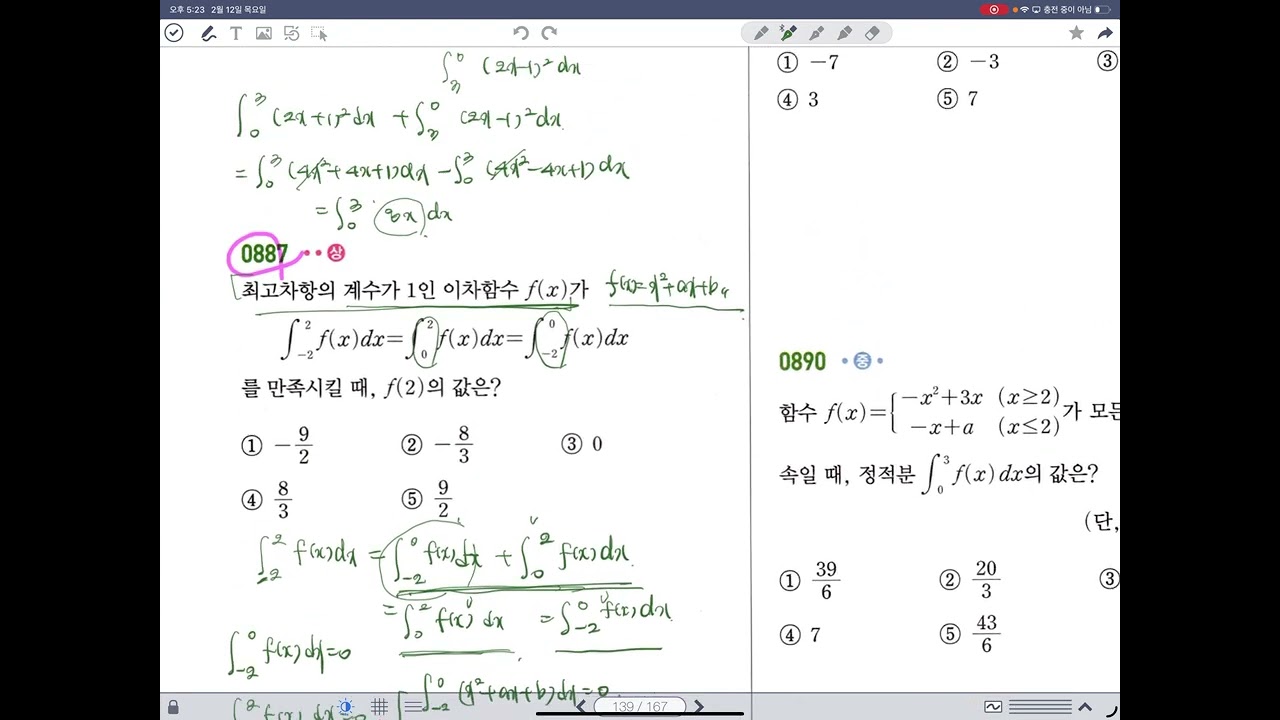 오후 5:23 2월 12일 목요일
충전 중이 아님
∫₃⁰ (2x-1)² dx
∫₀³ (2x+1)² dx + ∫₃⁰ (2x-1)² dx
= ∫₀³ (4x²+4x+1) dx - ∫₀³ (4x²-4x+1) dx
= ∫₀³ 8x dx
0887 상
최고차항의 계수가 1인 이차함수 f(x)가 f(x)=x²+ax+b
∫₋₂² f(x)dx=∫₀² f(x)dx=∫₋₂⁰ f(x)dx
를 만족시킬 때, f(2)의 값은?
① -9/2 ② -8/3 ③ 0
④ 8/3 ⑤ 9/2
∫₋₂² f(x)dx = ∫₋₂⁰ f(x)dx + ∫₀² f(x)dx
= ∫₀² f(x) dx = ∫₋₂⁰ f(x)dx
∫₋₂⁰ f(x)dx=0
∫₋₂⁰ (x²+ax+b)dx=0
① -7 ② -3 ③
④ 3 ⑤ 7
0890 중
함수 f(x)={-x²+3x (x≥2)
-x+a (x≤2) 가 모든
속일 때, 정적분 ∫₀³ f(x)dx의 값은?
(단,
① 39/6 ② 20/3 ③
④ 7 ⑤ 43/6
139 / 167